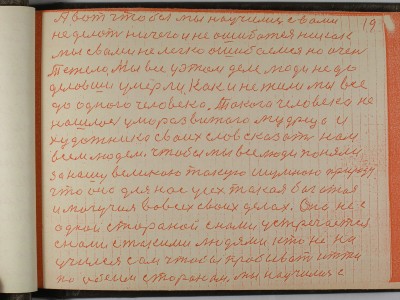 А вот чтобы мы научились с вами 19
не делать ничего и не ошибаться никак
мы с вами не легко ошибаемся но очен
Тежело, Мы все у этом деле люди не до
деловши умерли, Как и не жили мы все
до одного человека, Такого человека не
нашлось ума развитого мудрца и
художника своих слов сказать нам
всем людям. чтобы мы все люди поняли
за нашу великою такую шумною природу
что оно для нас усех такая богатая
и могучия во всех своих делах. Оно не с
одной стараной с нами устречается
с нами с такими людями, кто не на
учился сам чтобы пробывать итти
по убоеим старонам, мы научились с